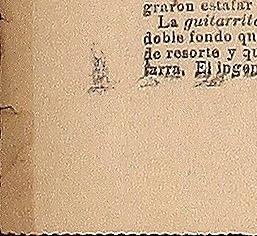 graron estafar
La guitarrit
doble fondo qu
de resorte y qu
farra. El ingen